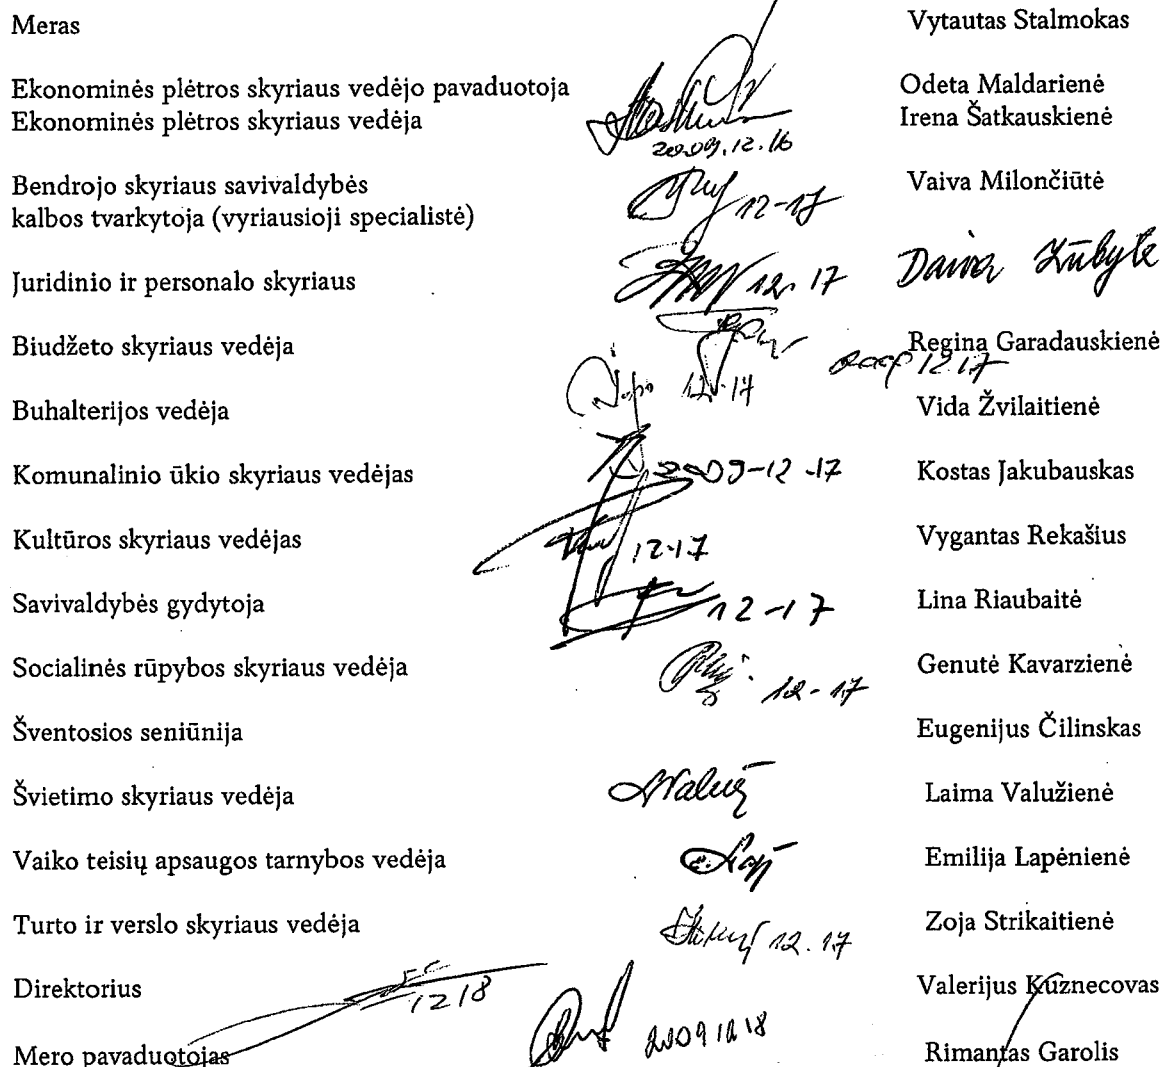 Meras Vytautas Stalmokas
Ekonominės plėtros skyriaus vedėjo pavaduotoja Odeta Maldarienė
Ekonominės plėtros skyriaus vedėja Irena Šatkauskienė
2009.12.16
Bendrojo skyriaus savivaldybės Vaiva Milončiūtė
kalbos tvarkytoja (vyriausioji specialistė) 12-17
Juridinio ir personalo skyriaus 12.17 Daiva Zūbytė
Biudžeto skyriaus vedėja Regina Garadauskienė
12 17
12-17
Buhalterijos vedėja Vida Žvilaitienė
Komunalinio ūkio skyriaus vedėjas 2009-12-17 Kostas Jakubauskas
Kultūros skyriaus vedėjas 12.17 Vygantas Rekašius
Savivaldybės gydytoja 12-17 Lina Riaubaitė
Socialinės rūpybos skyriaus vedėja 12-17 Genutė Kavarzienė
Šventosios seniūnija Eugenijus Čilinskas
Švietimo skyriaus vedėja Laima Valužienė
Vaiko teisių apsaugos tarnybos vedėja Emilija Lapėnienė
Turto ir verslo skyriaus vedėja 12.17 Zoja Strikaitienė
Direktorius 12 18 Valerijus Kuznecovas
Mero pavaduotojas 2009 12 18 Rimantas Garolis